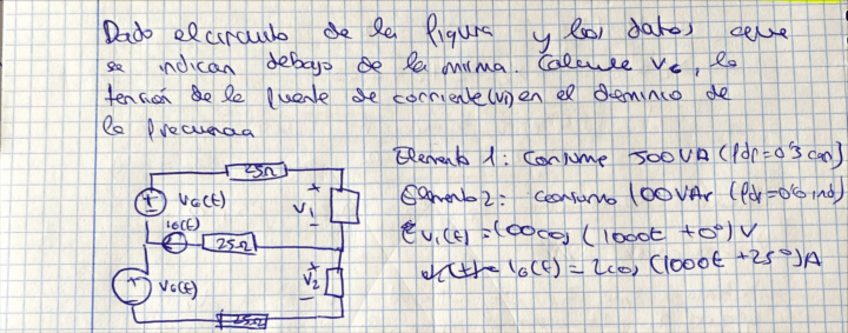 Dado el circuito de la figura y los datos que
se indican debajo de la misma. Calcule VG, la
tensión de la fuente de corriente (Vi) en el dominio de
la frecuencia
Elemento 1: Consume 500VA (fdp=0'3 cap)
Elemento 2: consume 100VAr (fdp=0'6 ind)
V1(t) = 100cos (1000t +0º) V
iG(t) = 2cos (1000t +25º) A
25Ω
+
VG(t)
V1
-
iG(t)
25Ω
+
VG(t)
V2
-
25Ω